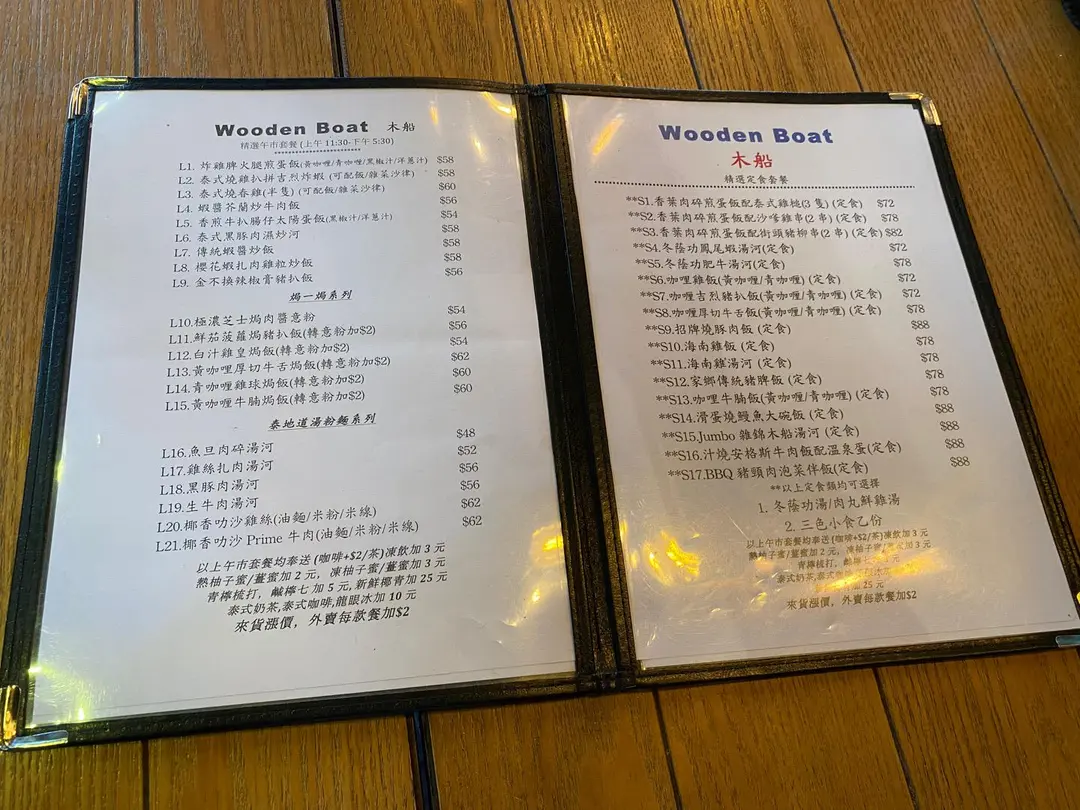 Wooden Boat 木船
精選午市套餐(上午 11:30-下午 5:30)
L1. 炸雞脾火腿煎蛋飯(黃咖喱/青咖喱/黑椒汁/洋蔥汁) $58
L2. 泰式燒雞扒拼吉烈炸蝦 (可配飯/雜菜沙律) $58
L3. 泰式燒春雞(半隻) (可配飯/雜菜沙律) $60
L4. 蝦醬芥蘭炒牛肉飯 $56
L5. 香煎牛扒腸仔太陽蛋飯(黑椒汁/洋蔥汁) $54
L6. 泰式黑豚肉濕炒河 $58
L7. 傳統蝦醬炒飯 $58
L8. 櫻花蝦扎肉雞粒炒飯 $58
L9. 金不換辣椒膏豬扒飯 $56
焗一焗系列
L10.極濃芝士焗肉醬意粉 $54
L11.鮮茄菠蘿焗豬扒飯(轉意粉加$2) $56
L12.白汁雞皇焗飯(轉意粉加$2) $54
L13.黃咖哩厚切牛舌焗飯(轉意粉加$2) $62
L14.青咖喱雞球焗飯(轉意粉加$2) $60
L15.黃咖喱牛腩焗飯(轉意粉加$2) $60
泰地道湯粉麵系列
L16.魚旦肉碎湯河 $48
L17.雞絲扎肉湯河 $52
L18.黑豚肉湯河 $56
L19.生牛肉湯河 $56
L20.椰香叻沙雞絲(油麵/米粉/米線) $62
L21.椰香叻沙 Prime 牛肉(油麵/米粉/米線) $62
以上午市套餐均奉送 (咖啡+$2/茶)凍飲加 3 元
熱柚子蜜/薑蜜加 2 元, 凍柚子蜜/薑蜜加 3 元
青檸梳打, 鹹檸七 加 5 元,新鮮椰青加 25 元
泰式奶茶,泰式咖啡,龍眼冰加 10 元
來貨漲價, 外賣每款餐加$2
Wooden Boat
木船
精選定食套餐
**S1.香葉肉碎煎蛋飯配泰式雞槌(3 隻) (定食) $72
**S2.香葉肉碎煎蛋飯配沙嗲雞串(2 串) (定食) $78
**S3.香葉肉碎煎蛋飯配街頭豬柳串(2 串) (定食) $82
**S4.冬蔭功鳳尾蝦湯河(定食) $72
**S5.冬蔭功肥牛湯河(定食) $78
**S6.咖哩雞飯(黃咖喱/青咖喱) (定食) $72
**S7.咖喱吉烈豬扒飯(黃咖喱/青咖喱) (定食) $72
**S8.咖喱厚切牛舌飯(黃咖喱/青咖喱) (定食) $78
**S9.招牌燒豚肉飯 (定食) $88
**S10.海南雞飯 (定食) $78
**S11.海南雞湯河 (定食) $78
**S12.家鄉傳統豬脾飯 (定食) $78
**S13.咖哩牛腩飯(黃咖喱/青咖喱) (定食) $78
**S14.滑蛋燒鰻魚大碗飯 (定食) $88
**S15.Jumbo 雜錦木船湯河 (定食) $88
**S16.汁燒安格斯牛肉飯配溫泉蛋(定食) $88
**S17.BBQ 豬頸肉泡菜伴飯(定食) $88
**以上定食類均可選擇
1. 冬蔭功湯/肉丸鮮雞湯
2. 三色小食乙份
以上午市套餐均奉送 (咖啡+$2/茶)凍飲加 3 元
熱柚子蜜/薑蜜加 2 元, 凍柚子蜜/薑蜜加 3 元
青檸梳打, 鹹檸七
泰式奶茶,泰式咖啡
25 元
來貨漲價, 外賣每款餐加$2